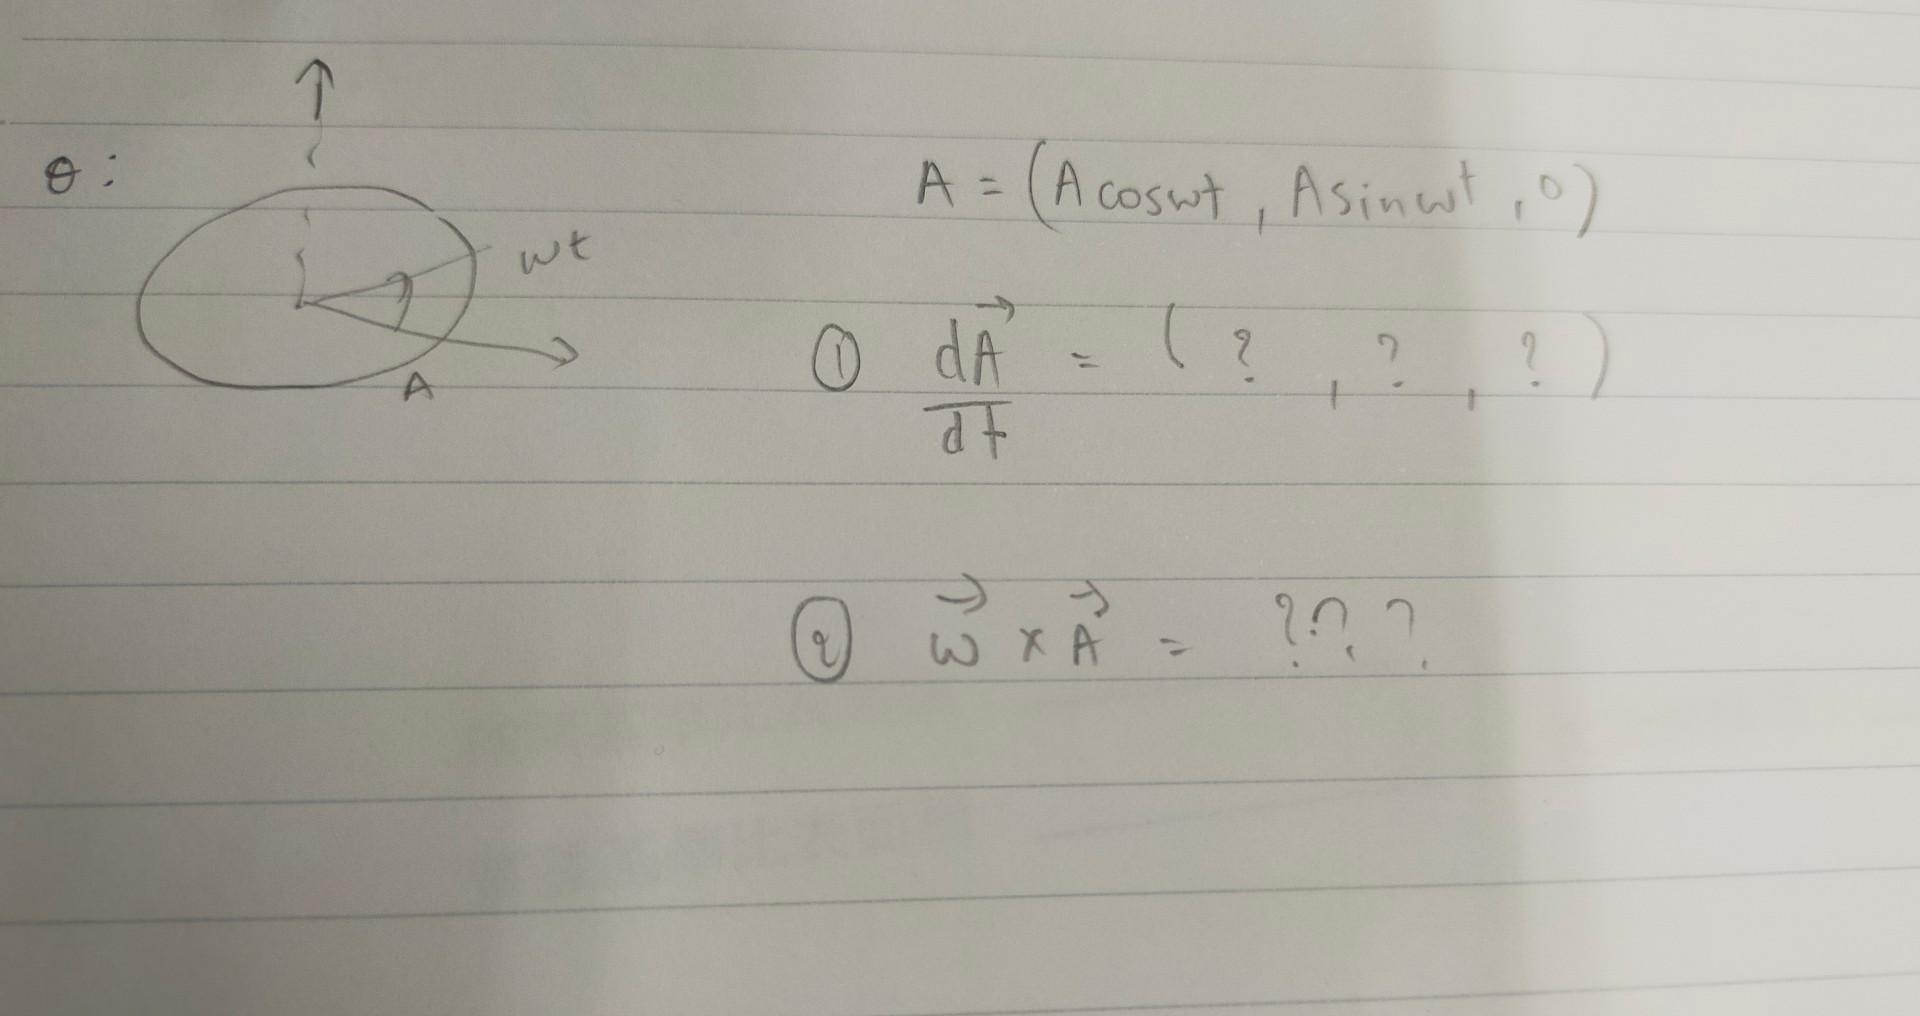 θ:
wt
A
A = (A coswt, A sinwt, 0)
① dA⃗/dt = ( ?, ?, ? )
② w⃗ x A⃗ = ???